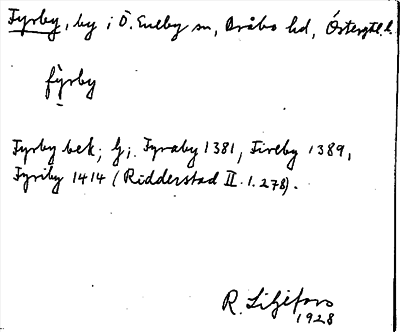 Fyrby, by i Ö. Eneby sn, Bråbo hd, Östergtl. l.
fyrby
Fyrby bek; Gj. Fyraby 1381, Fireby 1389,
Fyriby 1414 (Ridderstad II. 1. 278).
R. Liljefors
1928